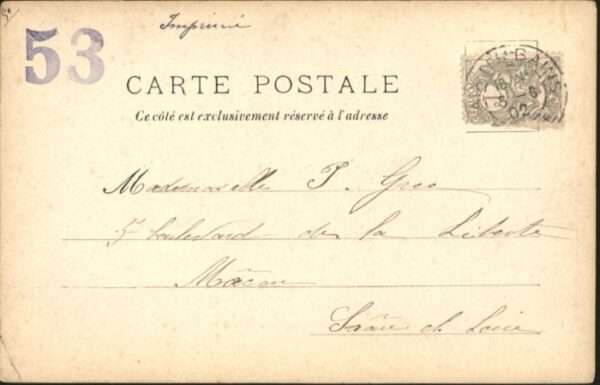 Imprimé
53
CARTE POSTALE
Ce côté est exclusivement réservé à l'adresse
Mademoiselle P. Gros
5 boulevard de la Liberté
Mâcon
Saône et Loire